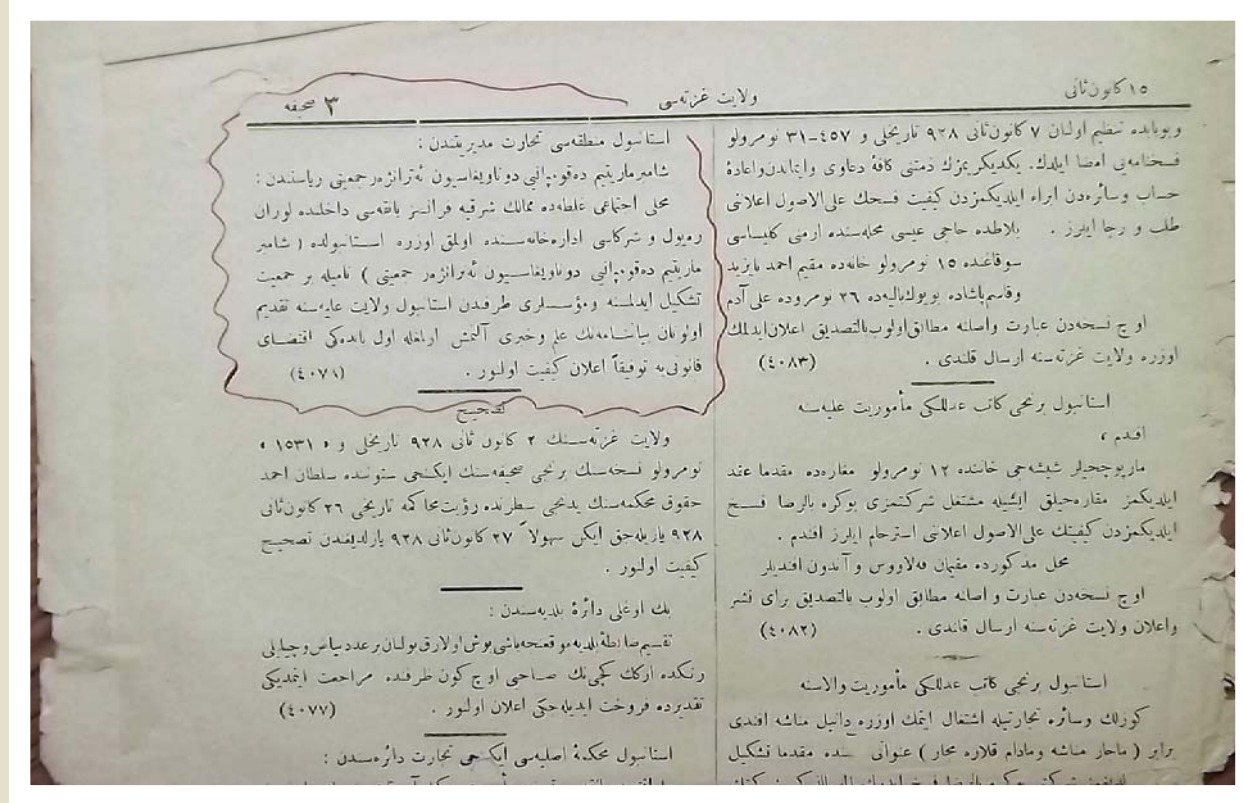 ١٥ كانون ثانی
ولايت غزته‌سی
٣ صحيفه
وبوبابده تنظيم اولنان ٧ كانون ثانی ٩٢٨ تاريخلی و ٤٥٧-٣١ نومرولو
فسخنامه‌یی امضا ايلدك. يكديگريمزك ذمتنی كافهٔ دعاوی وايماندن واعادهٔ
حساب وسائره‌دن ابراء ايلديكمزدن كيفيت فسخك علی الاصول اعلاننی
طلب و رجا ايدرز . بلاطده حاجی عيسی محله‌سنده ارمنی كليساسی
سوقاغنده ١٥ نومرولو خانه‌ده مقيم احمد بايزيد
وقاسم پاشاده بويوك پياليه‌ده ٢٦ نومروده علی آدم
اوچ نسخه‌دن عبارت واصلنه مطابق اولوب بالتصديق اعلان ايدلمك
اوزره ولايت غزته‌سنه ارسال قلندی . (٤٠٨٣)
استانبول برنجی كاتب عدللكی مأموريت عليه‌سنه
افندم ،
مارپوچجيلر شيشه‌جی خاننده ١٢ نومرولو مغازه‌ده مقدما عقد
ايلديكمز مقاره‌جيلق ايشيله مشتغل شركتمزی بوكره بالرضا فسخ
ايلديكمزدن كيفيتك علی الاصول اعلاننی استرحام ايلرز افندم .
محل مذكورده مقيمان فه‌لاووس و آندون افنديلر
اوچ نسخه‌دن عبارت و اصلنه مطابق اولوب بالتصديق برای نشر
واعلان ولايت غزته‌سنه ارسال قلندی . (٤٠٨٢)
استانبول برنجی كاتب عدللكی مأموريت والاسنه
كوزلك وسائره تجارتيله اشتغال ايتمك اوزره دانيل مناشه افندی
برابر ( ماجار مناشه ومادام قلاره مجار ) عنوانی سنده مقدما تشكيل
استانبول منطقه‌سی تجارت مديريتندن :
شامبر ماريتيم ده‌قومپانی دو ناويغاسيون ئه‌ترانژه‌ر جمعيتی رياستندن :
محلی اجتماعی غلطه‌ده ممالك شرقيه فرانسز بانقه‌سی داخلنده لوران
ره‌بول و شركاسی اداره‌خانه‌سنده اولمق اوزره استانبولده ( شامبر
ماريتيم ده‌قومپانی دو ناويغاسيون ئه‌ترانژه‌ر جمعيتی ) ناميله بر جمعيت
تشكيل ايدلمنه ومؤسسلری طرفندن استانبول ولايت عليه‌سنه تقديم
اولونان بياننامه‌نك علم وخبری آلنمش اولمغله اول بابده‌كی اقتضای
قانونی‌يه توفيقاً اعلان كيفيت اولنور . (٤٠٧١)
تصحيح
ولايت غزته‌سنك ٢ كانون ثانی ٩٢٨ تاريخلی و « ١٥٣١ »
نومرولو نسخه‌سنك برنجی صحيفه‌سنك ايكنجی ستوننده سلطان احمد
حقوق محكمه‌سنك يدنجی سطرنده رؤيت محاكمه تاريخی ٢٦ كانون ثانی
٩٢٨ يازيله‌جق ايكن سهولاً ٢٧ كانون ثانی ٩٢٨ يازلديغندن تصحيح
كيفيت اولنور .
بك اوغلی دائرهٔ بلديه‌سندن :
تقسيم ضابطهٔ بلديه موقعنجه باشی بوش اولارق بولنان بر عدد بياض وچپالی
رنكده اركك كچی‌نك صاحبی اوچ كون ظرفنده مراجعت ايتمديكی
تقديرده فروخت ايديله‌جكی اعلان اولنور . (٤٠٧٧)
استانبول محكمهٔ اصليه‌سی ايكنجی تجارت دائره‌سندن :